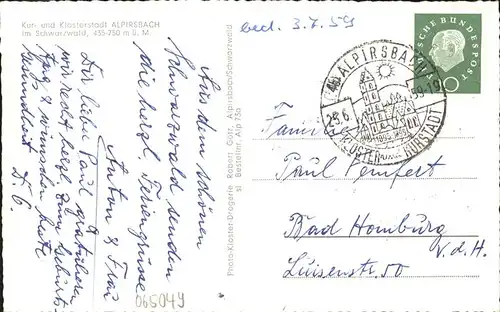 Kur- und Klosterstadt ALPIRSBACH
im Schwarzwald, 435-750 m ü. M.
bed. 3.7.59
Aus dem schönen
Schwarzwald senden
die herzl. Feriengrüsse
Anton & Frau
Dir liebe Paul gratulieren
wir recht herzl. zum Geburts
tag & wünschen beste
Gesundheit D. O.
065049
Photo-Kloster-Drogerie Robert Götz, Alpirsbach/Schwarzwald
Bestellnr. Alp 73a
ALPIRSBACH
25.6.
59-19
KLOSTER KURSTADT
DEUTSCHE BUNDESPOST
10
Familie
Paul Pempert
Bad Homburg
v.d.H.
Luisenstr. 50